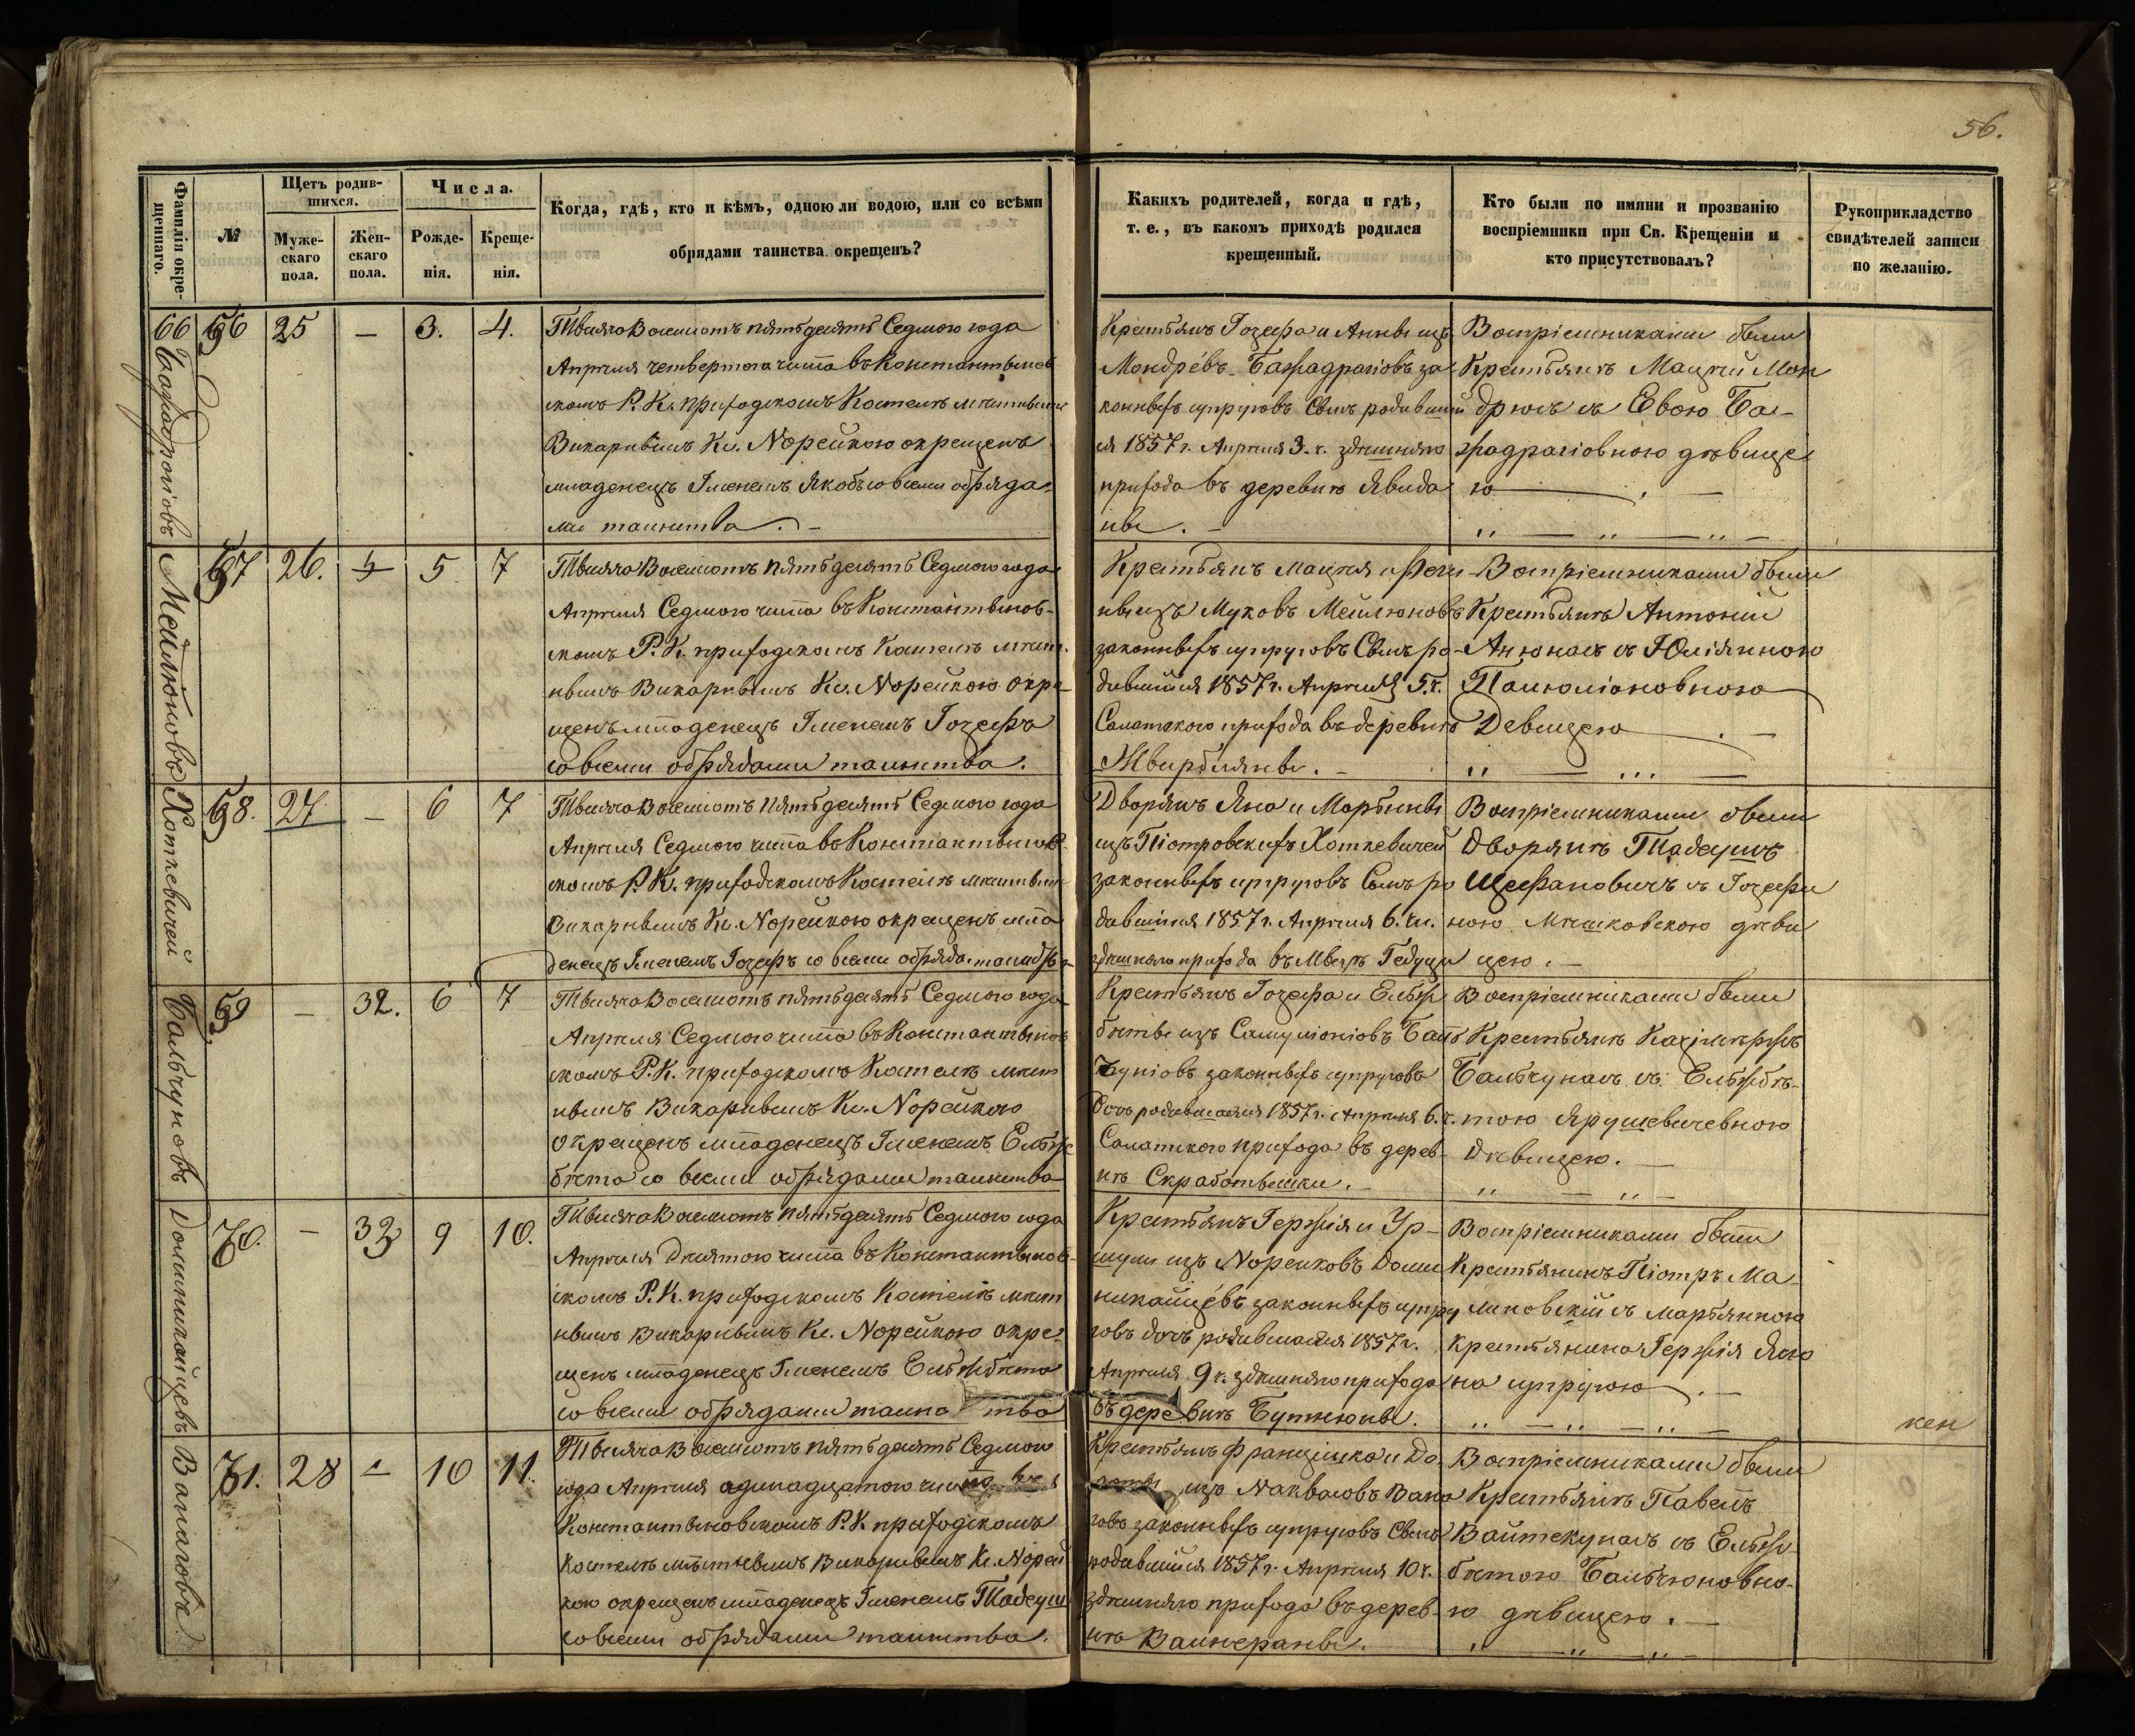 56.
Фамилія окре-
щеннаго.
№
Щетъ родив-
шихся.
Муже-
скаго
пола.
Жен-
скаго
пола.
Числа.
Рожде-
нія.
Креще-
нія.
Когда, гдѣ, кто и кѣмъ, одною ли водою, или со всѣми
обрядами таинства окрещенъ?
Какихъ родителей, когда и гдѣ,
т. е., въ какомъ приходѣ родился
крещенный.
Кто были по имяни и прозванію
воспріемники при Св. Крещеніи и
кто присутствовалъ?
Рукоприкладство
свидѣтелей записи
по желанію.
66
25 — 3. 4.
Тысяча Восемсотъ пятьдесятъ Седмого года
Апрѣля четвертого числа въ Константынов
скомъ Р. К. приходскомъ Костелѣ мѣстнымъ
Викарнымъ Кс. Норейкою окрещенъ
младенецъ Іменемъ Якобъ со всеми обряда-
ми таинства.
Крестьянъ Іозефа и Анны изъ
законныхъ супруговъ Сынъ родивший
ся 1857 г. Апрѣля 3. ч. здѣшняго
прихода въ деревнѣ Явида
ны.
Воспріемниками были
Крестьянъ Мацѣй Мон
дрюсъ съ Евою Ба-
жадрагіовною дѣвице
ю
Мейлюновъ
67 26. 5 7
Тысяча Восемсотъ пятьдесятъ Седмого года
Апрѣля Седмого числа въ Константынов-
скомъ Р. К. приходскомъ Костелѣ мѣст.
нымъ Викарнымъ Кс. Норейкою окре-
щенъ младенецъ Іменемъ Іозефъ
со всеми обрядами таинства.
законныхъ супруговъ Сынъ ро-
дившийся 1857 г. Апрѣля 5. ч.
Салатского прихода въ деревнѣ
Жвирбляны.
Воспріемниками были
Крестьянъ Антоній
Анюнасъ съ Юліянною
Девицею
Хоткевичей
68. 27 — 6 7
Тысяча Восемсотъ пятьдесятъ Седмого года
Апрѣля Седмого числа въ Константынов
скомъ Р. К. приходскомъ Костелѣ мѣстным
Викарнымъ Кс. Норейкою окрещенъ мла
денецъ Іменемъ Іозефъ со всеми обряда.
Дворянъ Яна и Мартыны
изъ Піотровскихъ Хоткевичей
законныхъ супруговъ Сынъ ро
дившийся 1857 г. Апрѣля 6. чи.
здѣшняго прихода въ
Воспріемниками были
Дворянъ Тадеушъ
Щефановичъ съ Іозефи
ною Мѣшковскою дѣви
цею.
Бальчуновъ
69 — 32. 6 7
Тысяча Восемсотъ пятьдесятъ Седмого года
Апрѣля Седмого числа въ Константынов
скомъ Р. К. приходскомъ Костелѣ мѣст
нымъ Викарнымъ Кс. Норейкою
окрещенъ младенецъ Іменемъ Ельж
бѣта со всеми обрядами таинства
Крестьянъ Іозефа и Ельж
бѣты изъ Самуліоніовъ Баль
чуніовъ законныхъ супруговъ
дочъ родившаяся 1857 г. Апрѣля 6. ч.
Салатского прихода въ дерев-
нѣ Скработышки.
Воспріемниками были
Крестьянъ Казімѣржъ
Бальчунасъ съ Ельжбѣ-
тою Ярушевичевною
Дѣвицею.
Доминикайцевъ
70. — 33 9 10.
Тысяча Восемсотъ пятьдесятъ Седмого года
Апрѣля Дѣсятого числа въ Константынов-
скомъ Р. К. приходскомъ Костелѣ мѣст
нымъ Викарнымъ Кс. Норейкою окре-
щенъ младенецъ Іменемъ Ельжбѣта
со всеми обрядами таинства
Крестьянъ Гержія и Ур-
шули изъ Нореиковъ Доми
никайцевъ законныхъ супру
говъ дочъ родившаяся 1857 г.
Апрѣля 9 ч. здѣшняго прихода
въ деревнѣ
Воспріемниками были
Крестьянинъ Піотръ Ма-
линовскій съ Мартянною
крестьянина Гержія Яно
на супругою.
кен
Валаговъ
71. 28 — 10 11.
Тысяча Восемсотъ пятьдесятъ Седмого
года Апрѣля адинадцатого числа въ
Константыновскомъ Р. К. приходскомъ
Костелѣ мѣстнымъ Викарнымъ Кс. Норей
кою окрещенъ младенецъ Іменемъ Тадеуш
со всеми обрядами таинства.
Крестьянъ Францішка и До
изъ
говъ законныхъ супруговъ Сынъ
родившийся 1857 г. Апрѣля 10 ч.
здѣшняго прихода въ дерев-
нѣ Вайнераны.
Воспріемниками были
Крестьянъ Павелъ
Вайтекунасъ съ Ельж-
бѣтою Бальчюновно-
ю дѣвицею.